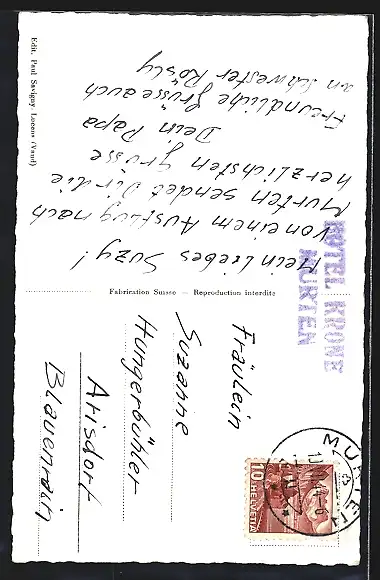 Mein liebes Suzy!
Von einem Ausflug nach
Murten sendet Dir die
herzlichsten Grüsse
Dein Papa
Freundliche Grüsse auch
an Schwester Rösly
HOTEL KRONE
MURTEN
Fräulein
Suzanne
Hungerbühler
Arisdorf
Blauenrain
MURTEN
10
HELVETIA
Fabrication Suisse — Reproduction interdite
Edit. Paul Savigny, Lucens (Vaud)